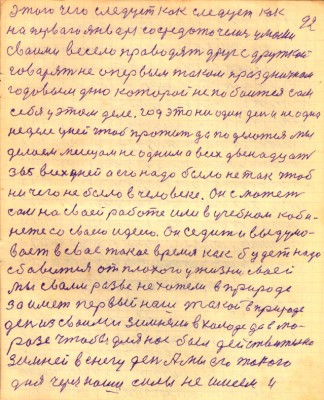 этого чего следует как следует как
92
на первого января сосредоточения умами
своими весело проводят друг с дружкой
говорят не о первым таком праздничном
годовым дню которой не побоится сам
себя у этом деле. год это ни один день и не одна
неделе у ней чтоб прожить да поделится мы
делаем месяцам не одним а всех двенадцат
365 всех дней а его надо было не так чтоб
ничего не было в человеке. Он сможет
сам на своей работе или в учебном каби
нете со своею идею. Он седит и выдумо
вает в свое такое время как будет надо
сбавится от плохого у жизни своей
мы с вами разве не хотели в природе
за имет первый наш такой в природе
ден из своими зимнею в холоде да в мо
розе чтобы для нас был действительно
зимней в снегу ден А мы его такого
дня через наши силы не имеем и